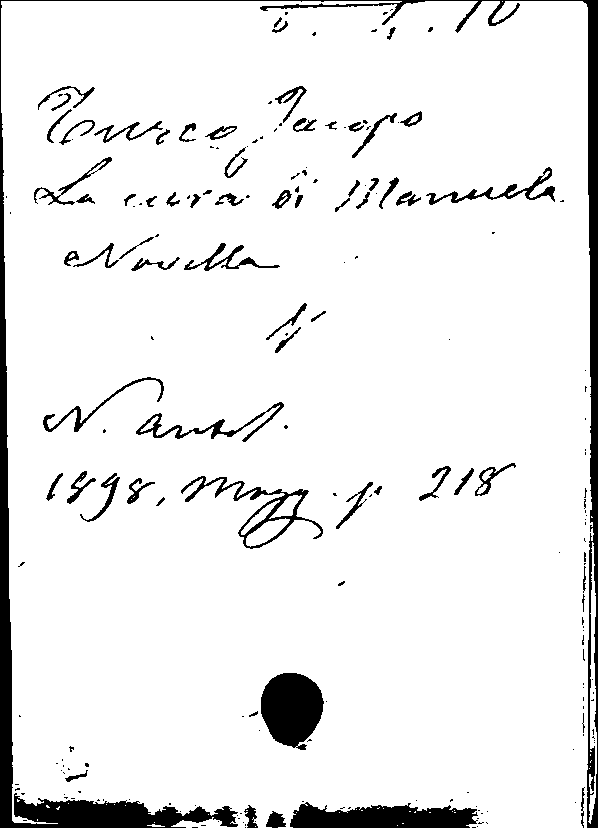 Turco Jacopo
La cura di Manuela.
Novella
N. Antol.
1898, Magg. p 218